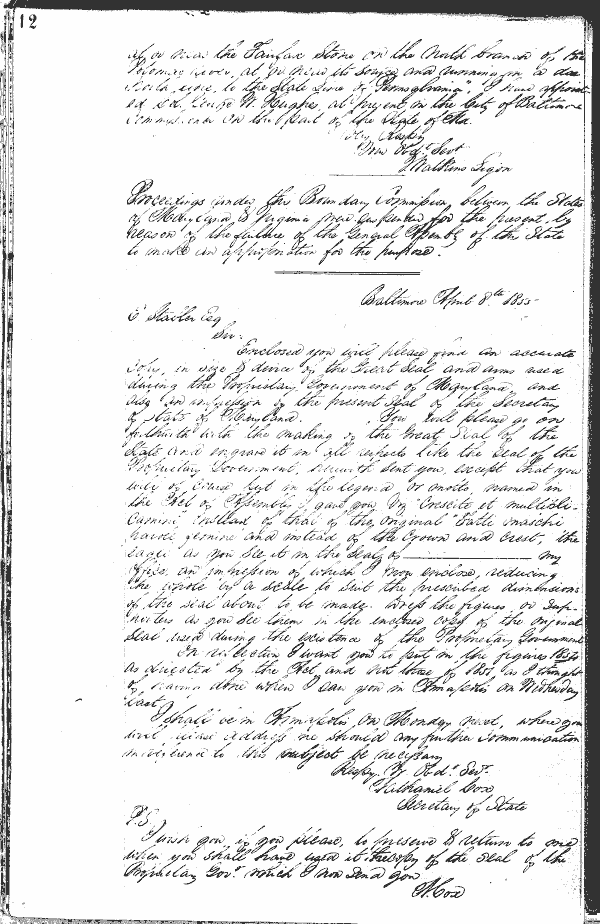 12
at or near the Fairfax Stone on the North branch of the
Potomac River, at or near its source and running in a due
North line, to the State Line of Pennsylvania", I have appoint-
ed W. Hughes, at present in the City of Baltimore
Commissioner on the part of the State of Md.
Very Respy
Your Obdt. Servt
T Watkins Ligon
Proceedings under the Boundary Commission between the States
of Maryland & Virginia were suspended for the present, by
reason of the failure of the General Assembly of this State
to make an appropriation for the purpose.
Baltimore April 8th 1855
E Stabler Esq
Sir:
Enclosed you will please find an accurate
copy, in size & device of the Great Seal and arms used
during the Proprietary Government of Maryland, and
also an impression of the present Seal of the Secretary
of State of Maryland. You will please go on
forthwith with the making of the Great Seal of the
State and engrave it in all respects like the Seal of the
Proprietary Government, herewith sent you, except that you
will of course put in the legend or motto, named in
the Act of Assembly I gave you Viz "Crescite et multipli-
camini, instead of that of the original "Fatti maschi
parole femine and instead of the Crown and crest, the
eagle as you see it in the Seal of my
office, an impression of which I now enclose, reducing
the whole by a scale to suit the prescribed dimensions
of the seal about to be made. Dress the figures, or Sup-
porters as you see them in the enclosed copy of the original
Seal used during the existence of the Proprietary Government
On reflection I want you to put in the figures 1854
as directed by the Act and not those of 1801, as I thought
of having done when I saw you in Annapolis on Wednesday
last.
I shall be in Annapolis, on Monday next, where you
will please address me should any further communication
in reference to this subject be necessary
Respy. Yr. Obdt. Servt.
Nathaniel Cox,
Secretary of State
P.S.
I wish you, if you please, to preserve & return to me
when you shall have used it the copy of the Seal of the
Proprietary Govt. which I now send you
N. Cox